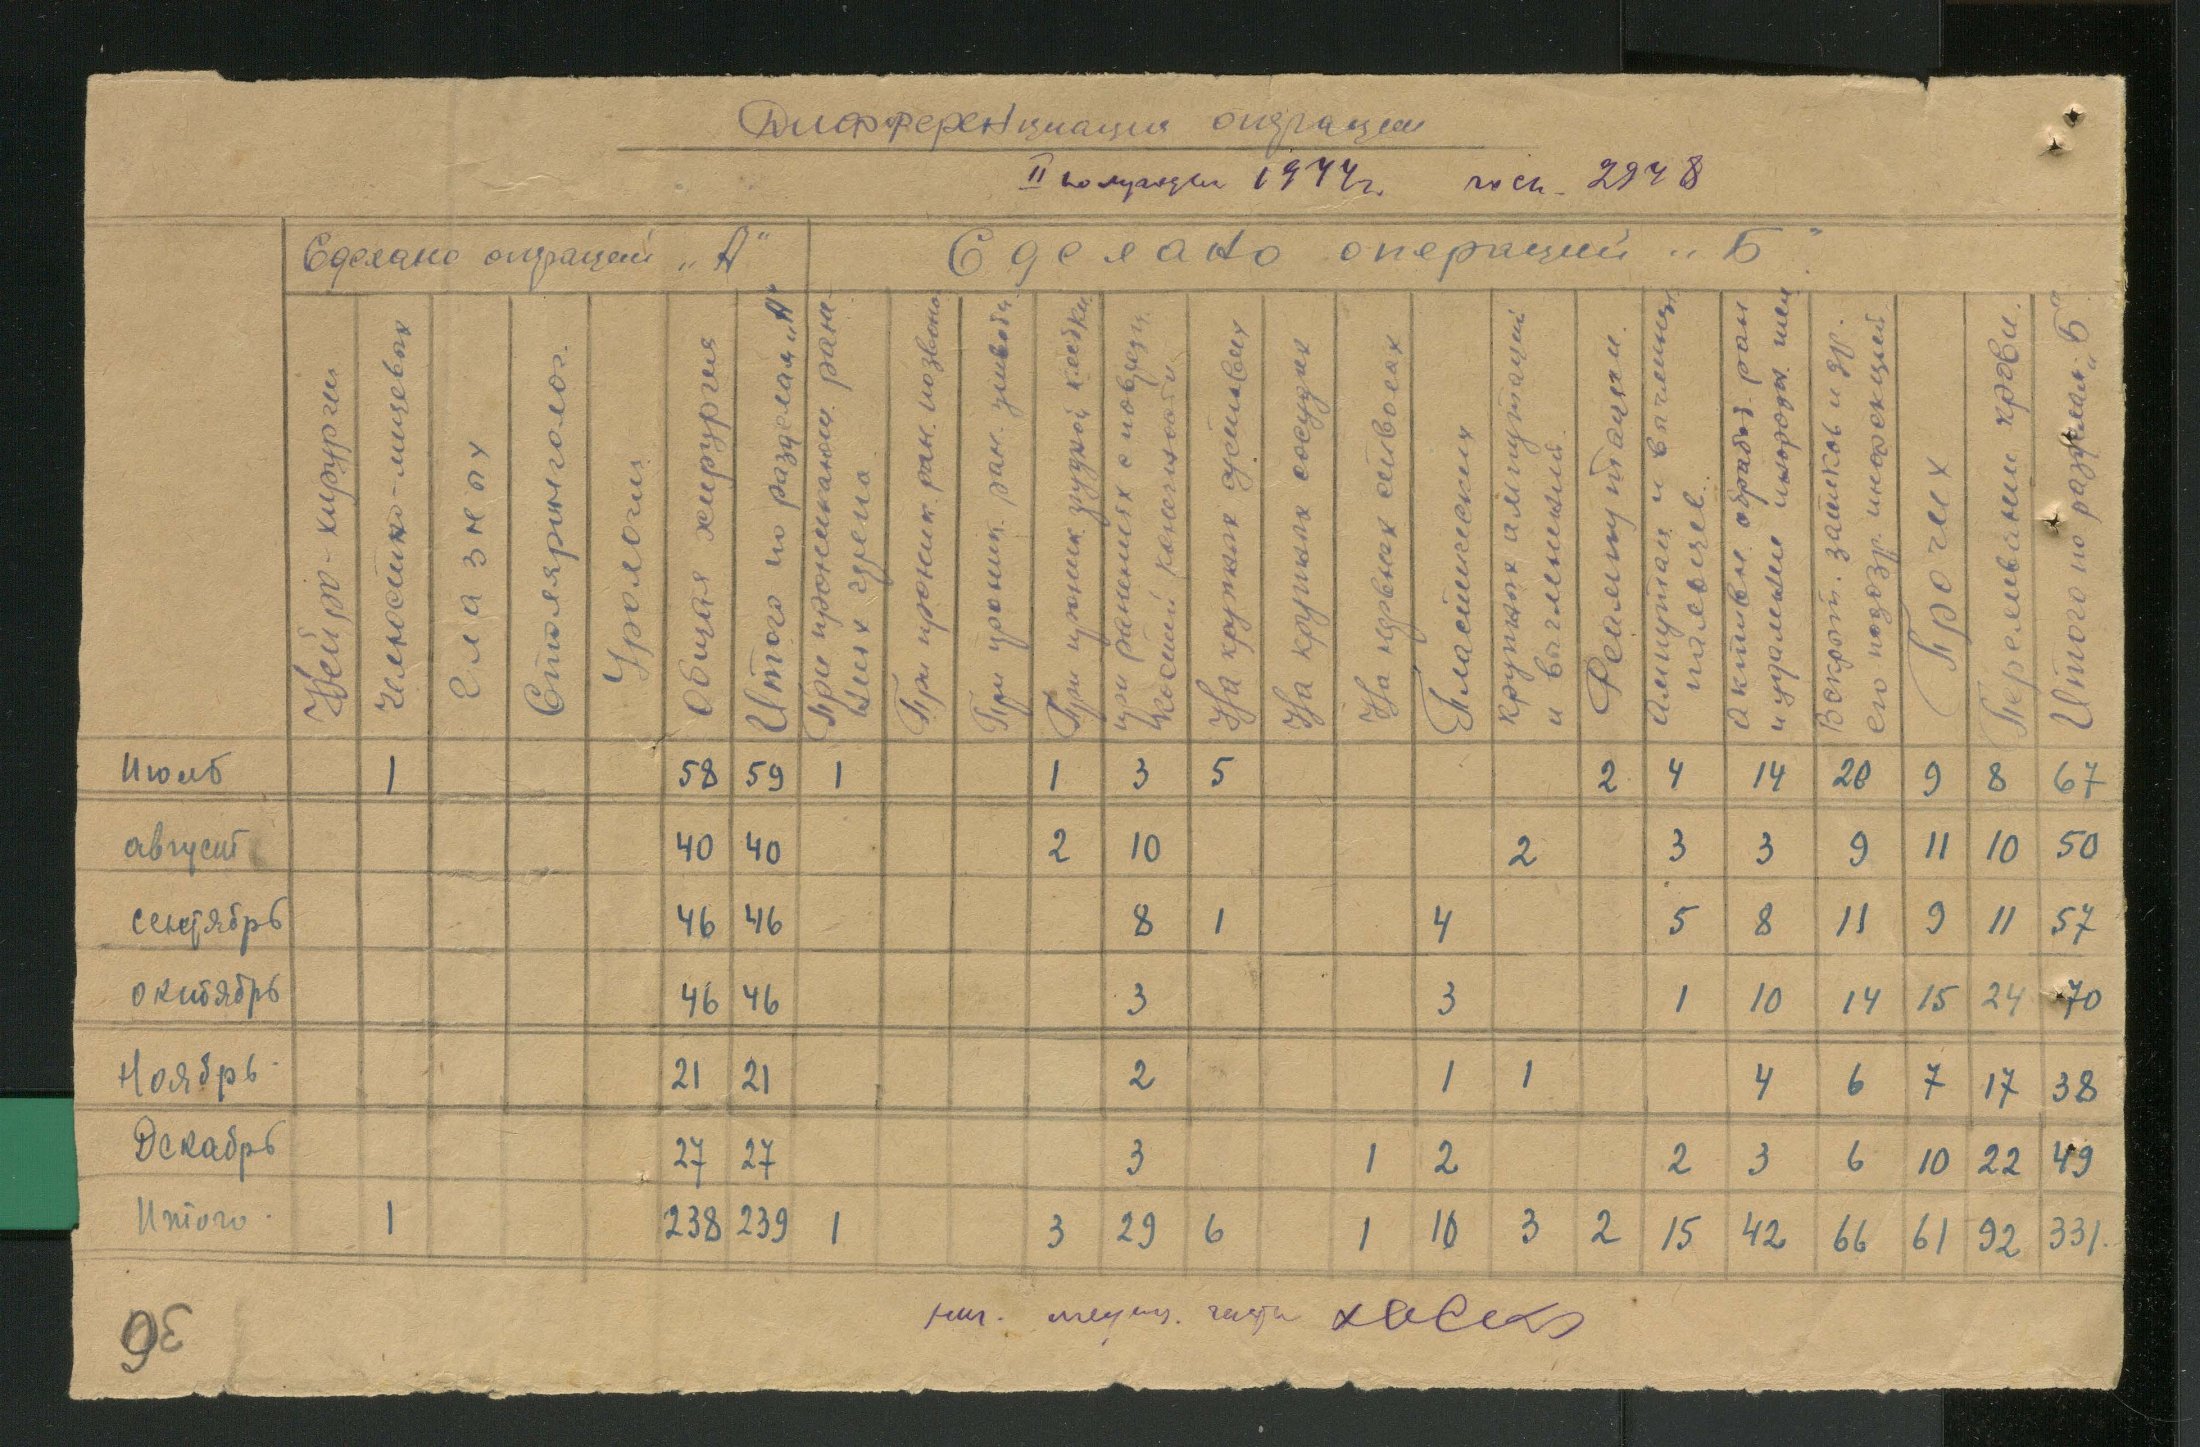 Дифференциация операции
II полугодия 1944г. госп. 2948
Сделано операций „А“ Сделано операций „Б“
Нейро-хирургия
Челюстно-лицевых
Глазных
Отоляринголог.
Урологии
Общая хирургия
Итого по разделам „А“
При проникающ. ране-
ниях черепа
При проник. ран. позвоно
При проник. ран. живота
При проник. грудной клетки
при ранениях с поврежд.
костей конечност.
На крупных суставах
На крупных сосудах
На нервных стволах
Пластических
крупных ампутаций
и вычленений
Реампутации
Ампутац и вычлен
пальцев
Активн обработ ран
и удаление инород тел
Вскрыт. затеков и др.
по подозр инфекций
Прочих
Переливании крови.
Итого по разделам „Б“
Июль 1 58 59 1 1 3 5 2 4 14 20 9 8 67
август 40 40 2 10 2 3 3 9 11 10 50
сентябрь 46 46 8 1 4 5 8 11 9 11 57
октябрь 46 46 3 3 1 10 14 15 24 70
Ноябрь 21 21 2 1 1 4 6 7 17 38
Декабрь 27 27 3 1 2 2 3 6 10 22 49
Итого 1 238 239 1 3 29 6 1 10 3 2 15 42 66 61 92 331.
нач. медиц. части